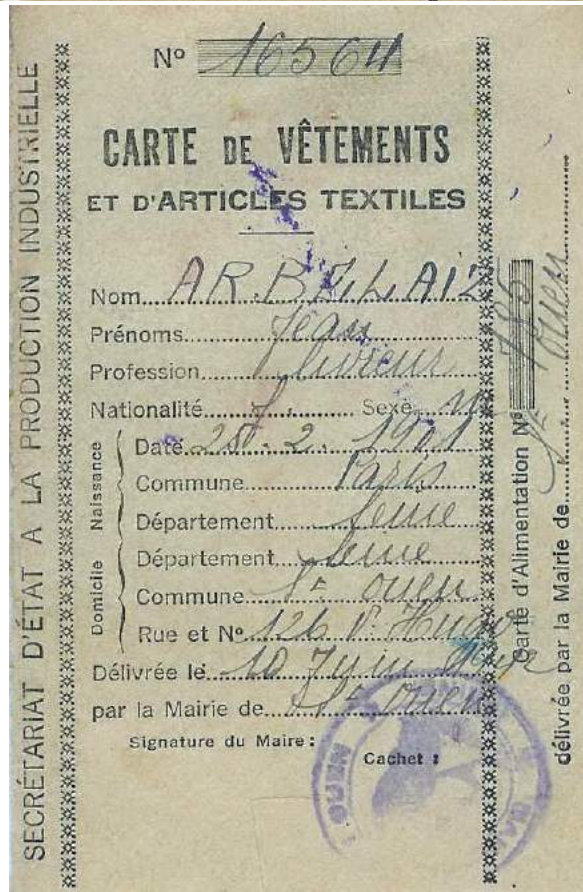 SECRÉTARIAT D'ÉTAT A LA PRODUCTION INDUSTRIELLE
Nº 16564
CARTE DE VÊTEMENTS
ET D'ARTICLES TEXTILES
Nom ARBELAIZ
Prénoms Jean
Profession livreur
Nationalité f. Sexe m
Naissance
Date 28.2.1901
Commune Paris
Département Seine
Domicile
Département Seine
Commune St Ouen
Rue et Nº 126 V. Hugo
Délivrée le 10 Juin
par la Mairie de St Ouen
Signature du Maire :
Cachet :
Carte d'Alimentation Nº 785
délivrée par la Mairie de St Ouen
OUEN